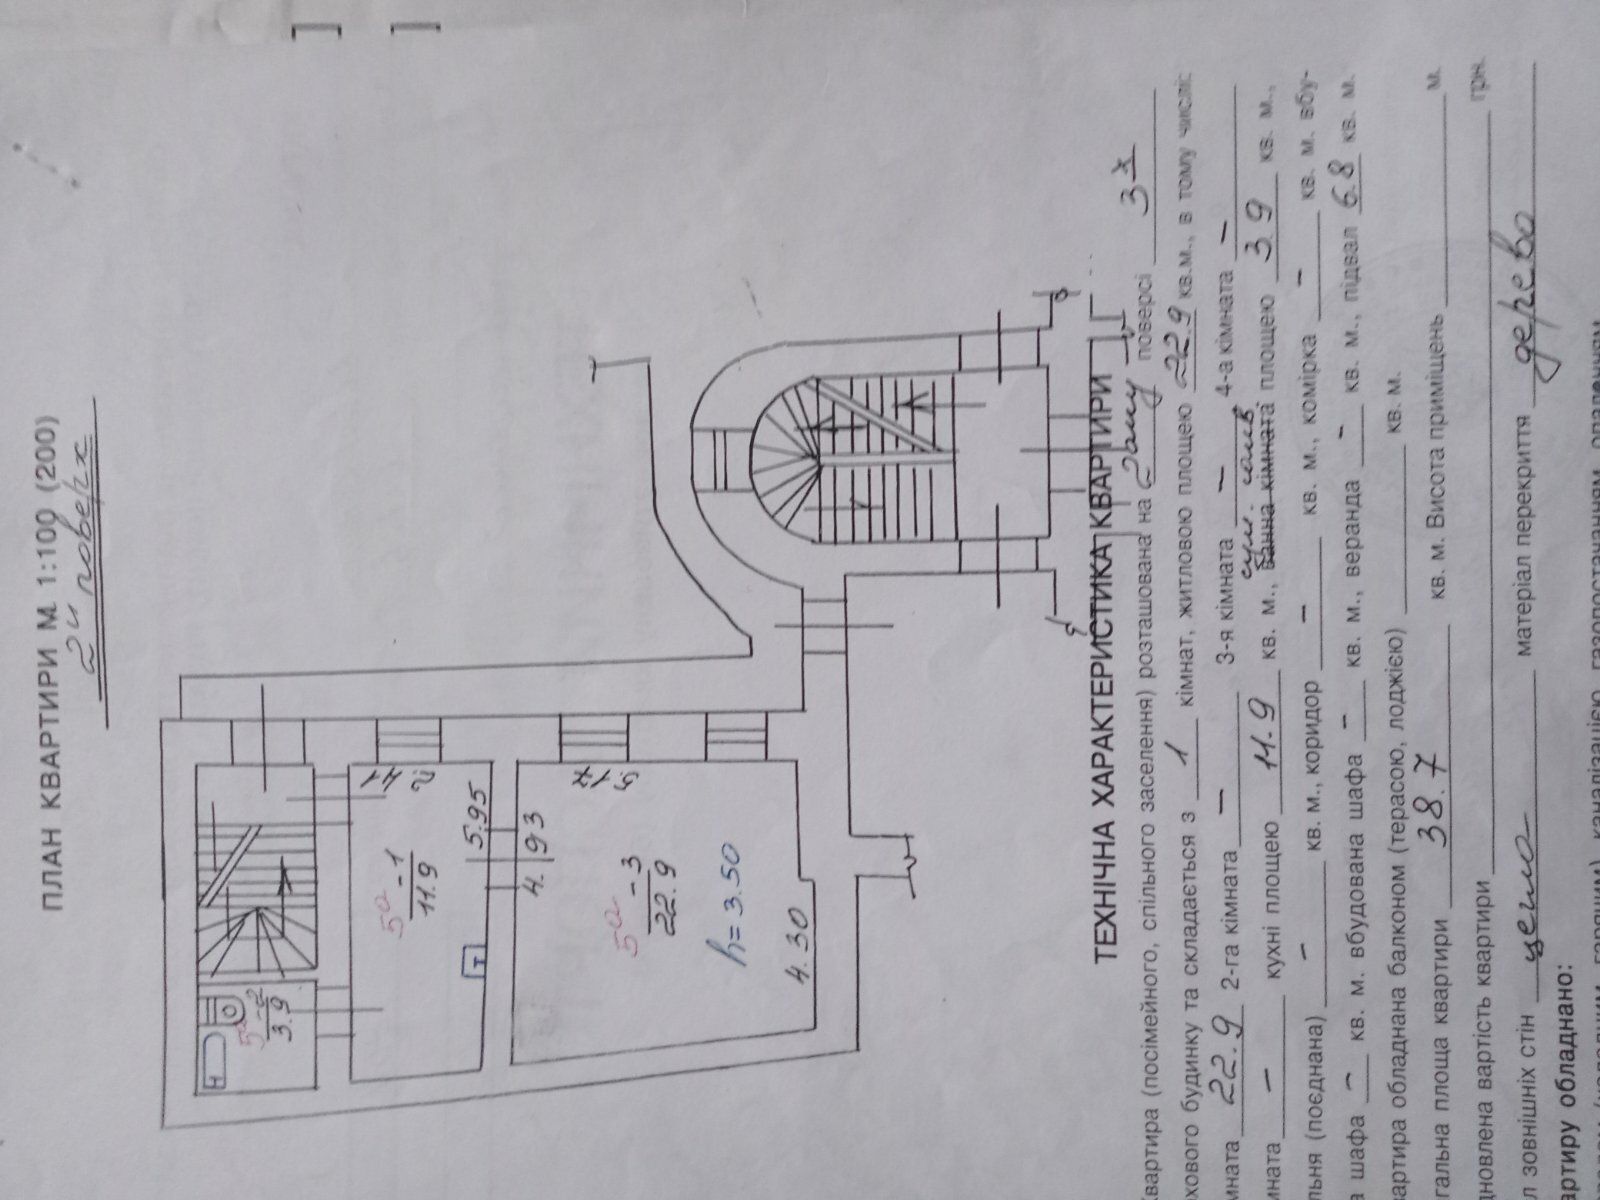 ПЛАН КВАРТИРИ М 1:100 (200)
2й поверх
Н
5а-2
3.9
5а-1
11.9
5.95
Т
4.93
5а-3
22.9
h=3.50
4.30
ТЕХНІЧНА ХАРАКТЕРИСТИКА КВАРТИРИ
квартира (посімейного, спільного заселення) розташована на 2ому поверсі 3х
хового будинку та складається з 1 кімнат, житловою площею 22.9 кв.м., в тому числі:
мната 22.9 2-га кімната - 3-я кімната - 4-а кімната -
мната - кухні площею 11.9 кв. м., ванна кімната сум. санв площею 3.9 кв. м.,
льня (поєднана) - кв. м., коридор - кв. м., комірка - кв. м. вбу-
а шафа - кв. м. вбудована шафа - кв. м., веранда - кв. м., підвал 6.8 кв. м.
артира обладнана балконом (терасою, лоджією) кв. м.
гальна площа квартири 38.7 кв. м. Висота приміщень м.
дновлена вартість квартири грн.
л зовнішніх стін цегла матеріал перекриття дерево
артиру обладнано: